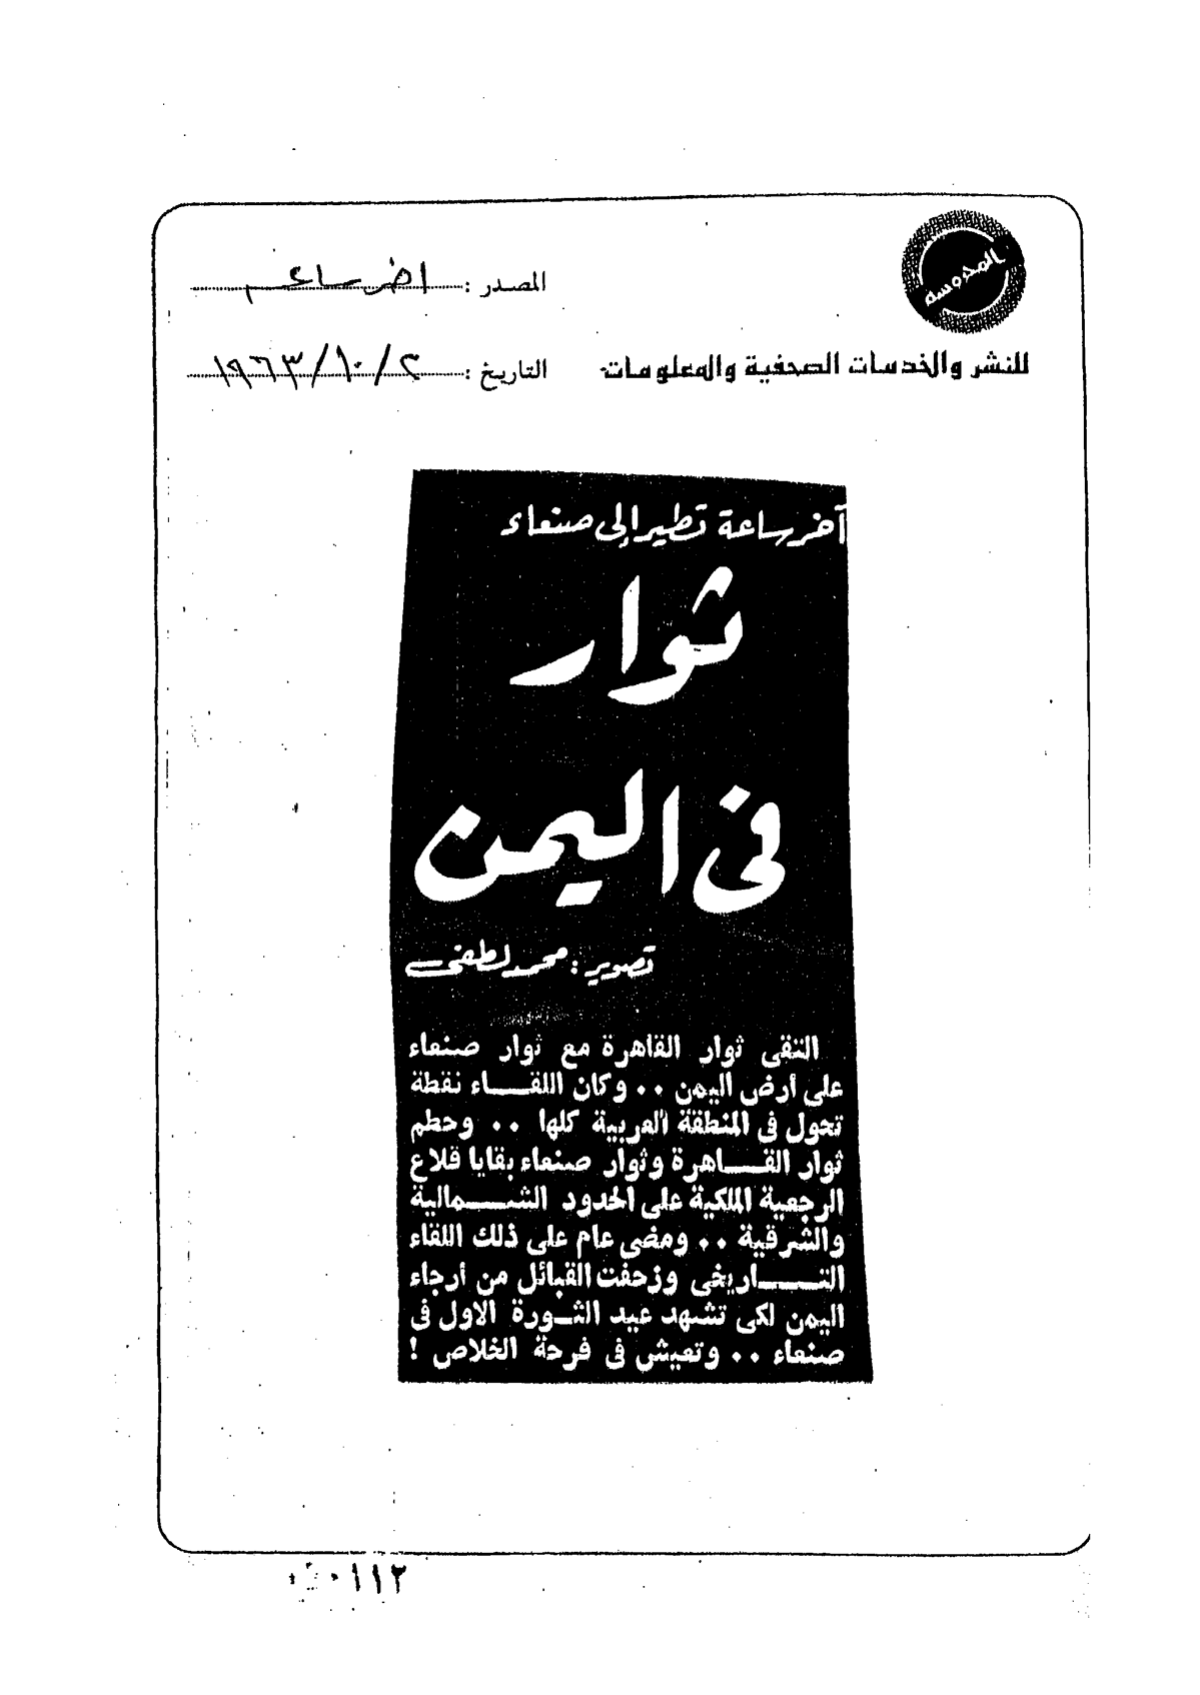 المحروسة
المصدر : اخر ساعة
للنشر والخدمات الصحفية والمعلومات
التاريخ : ٢/١٠/١٩٦٣
آخر ساعة تطير إلى صنعاء
ثوار
فى اليمن
تصوير : محمد لطفى
التقى ثوار القاهرة مع ثوار صنعاء
على أرض اليمن .. وكان اللقـــاء نقطة
تحول فى المنطقة العربية كلها .. وحطم
ثوار القـــاهرة وثوار صنعاء بقايا قلاع
الرجعية الملكية على الحدود الشـــمالية
والشرقية .. ومضى عام على ذلك اللقاء
التـــاريخى وزحفت القبائل من أرجاء
اليمن لكى تشهد عيد الثـورة الاول فى
صنعاء .. وتعيش فى فرحة الخلاص !
٠١١٢